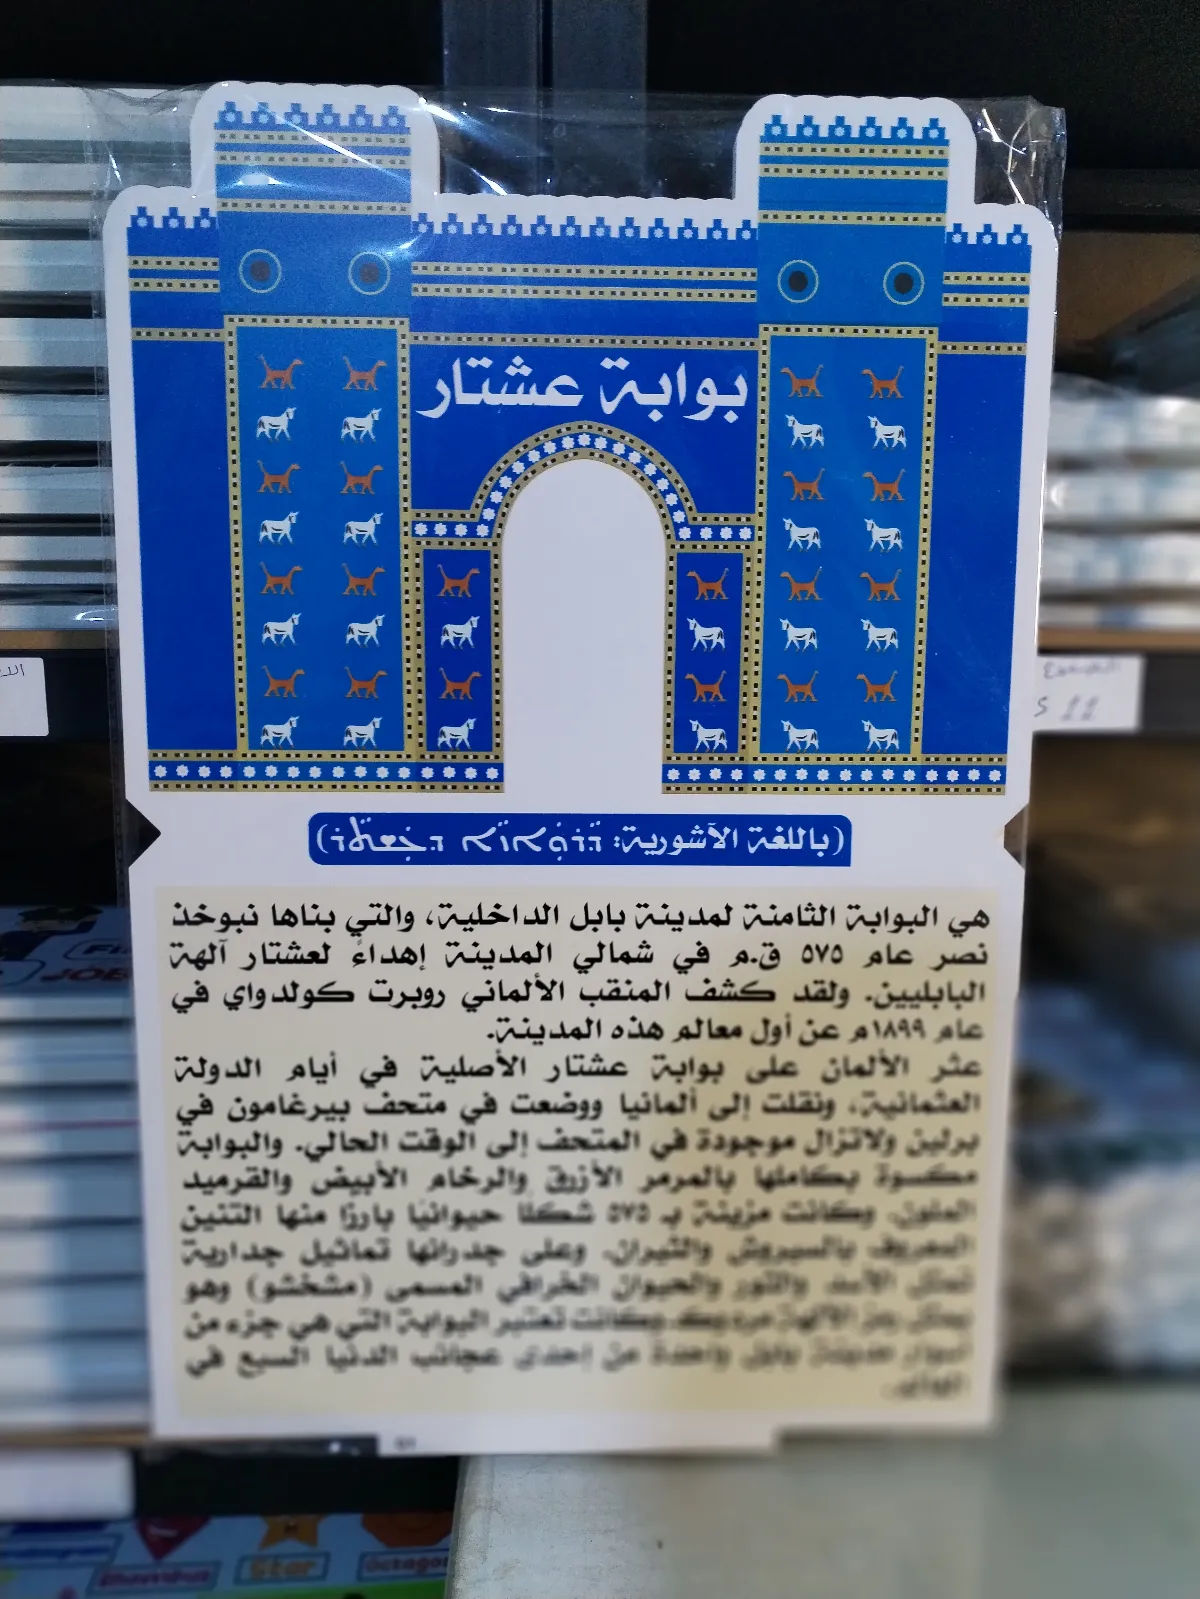 بوابة عشتار
هي البوابة الثامنة لمدينة بابل الداخلية، والتي بناها نبوخذ
نصر عام ٥٧٥ ق.م في شمالي المدينة إهداءً لعشتار آلهة
البابليين. ولقد كشف المنقب الألماني روبرت كولدواي في
عام ١٨٩٩م عن أول معالم هذه المدينة.
عثر الألمان على بوابة عشتار الأصلية في أيام الدولة
العثمانية، ونقلت إلى ألمانيا ووضعت في متحف بيرغامون في
برلين ولاتزال موجودة في المتحف إلى الوقت الحالي. والبوابة
مكسوة بكاملها بالمرمر الأزرق والرخام الأبيض والقرميد
الملون. وكانت مزينة بـ ٥٧٥ شكلاً حيوانيا بارزا منها التنين
المعروف بالسيروش والثيران. وعلى جدرانها تماثيل جدارية
تمثل الأسد والثور والحيوان الخرافي المسمى (مشخشو) وهو
وكانت تعتبر البوابة التي هي جزء من
أسوار مدينة بابل واحدة من إحدى عجائب الدنيا السبع في
Star
Octagon
Rhombus